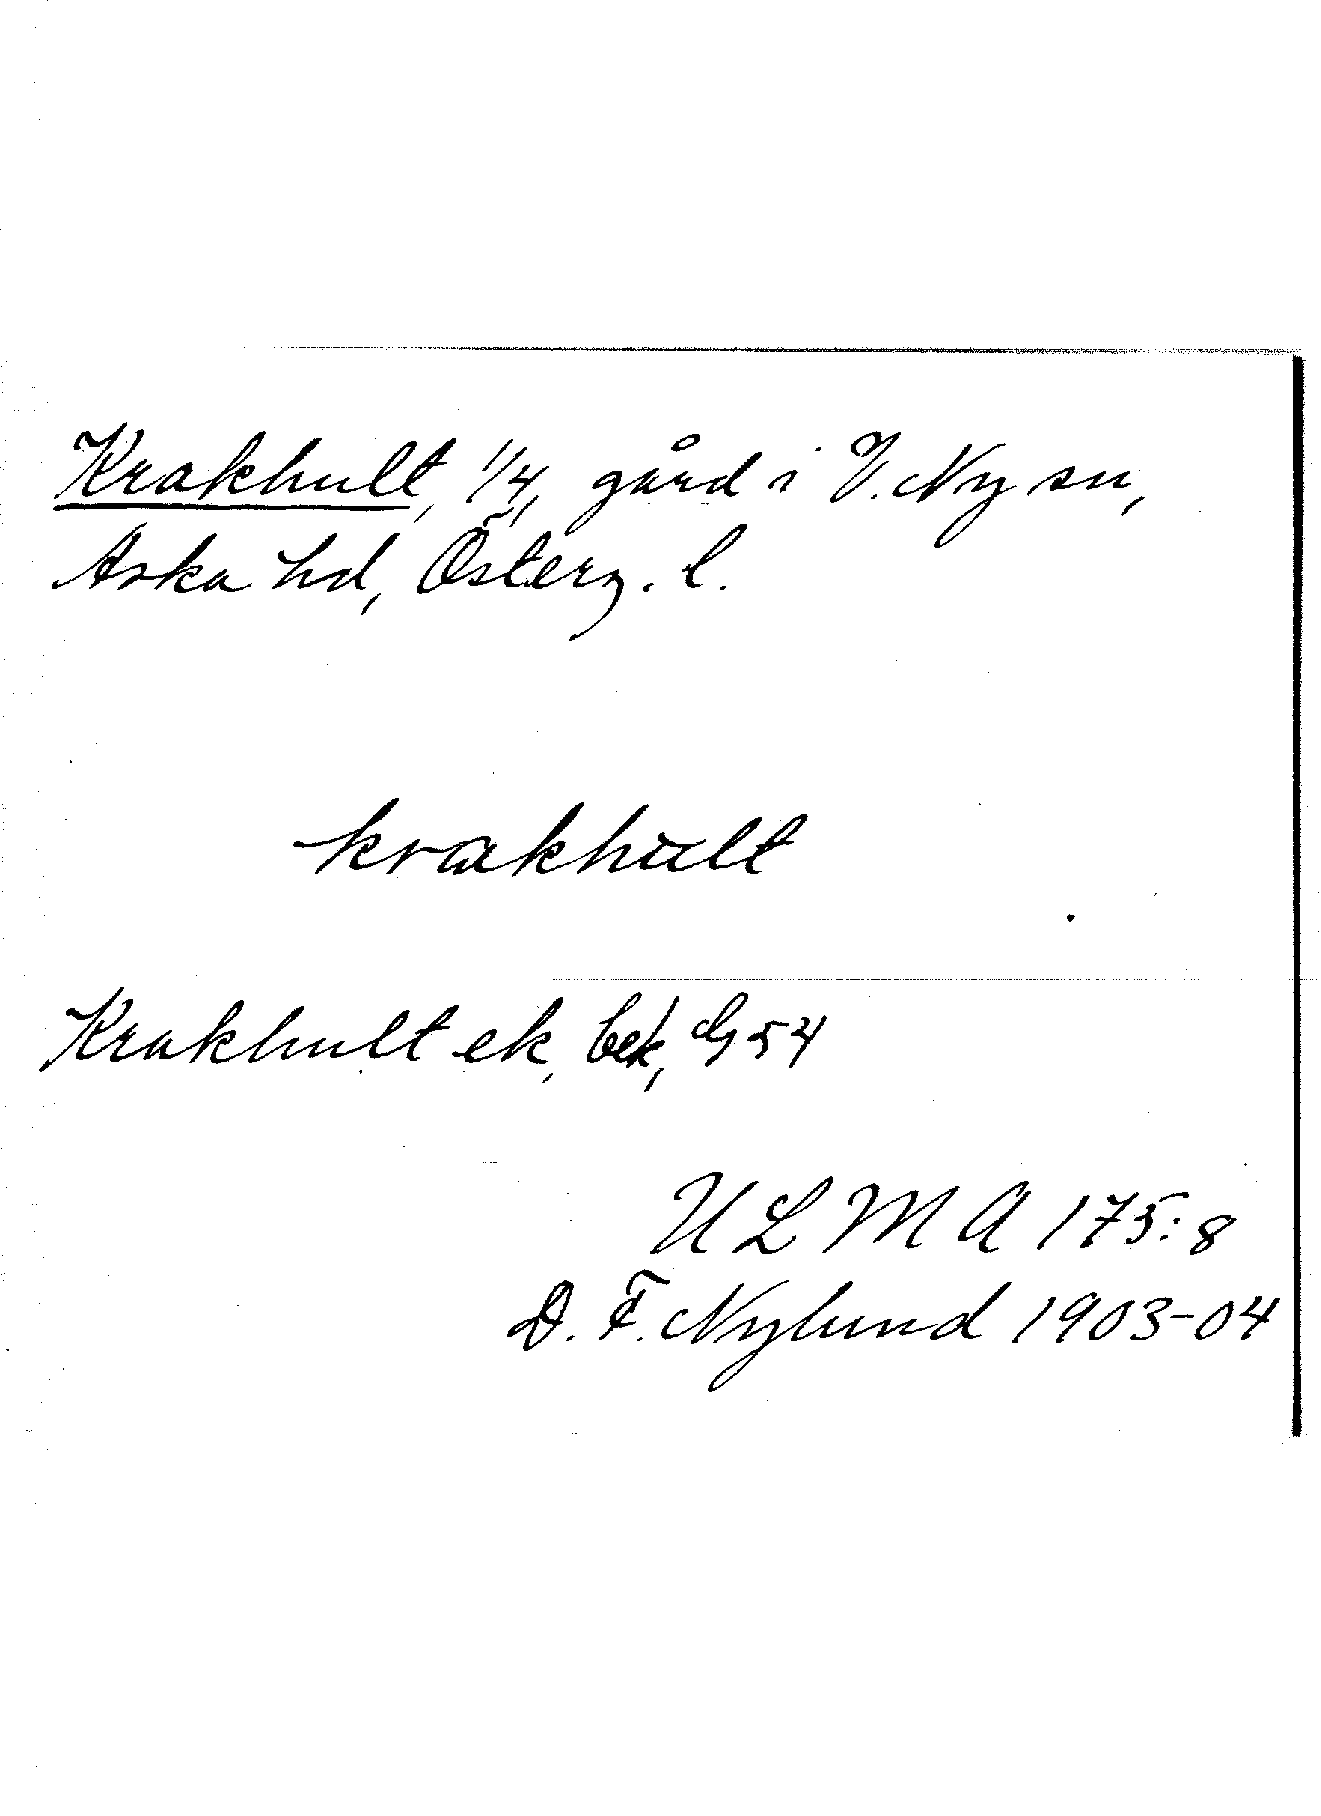 Krakhult, 1/4, gård i V. Ny sn,
Aska hd, Österg. l.
krakhult
Krakhult ek, bek, G 54
ULMA 175:8
D. F. Nylund 1903-04